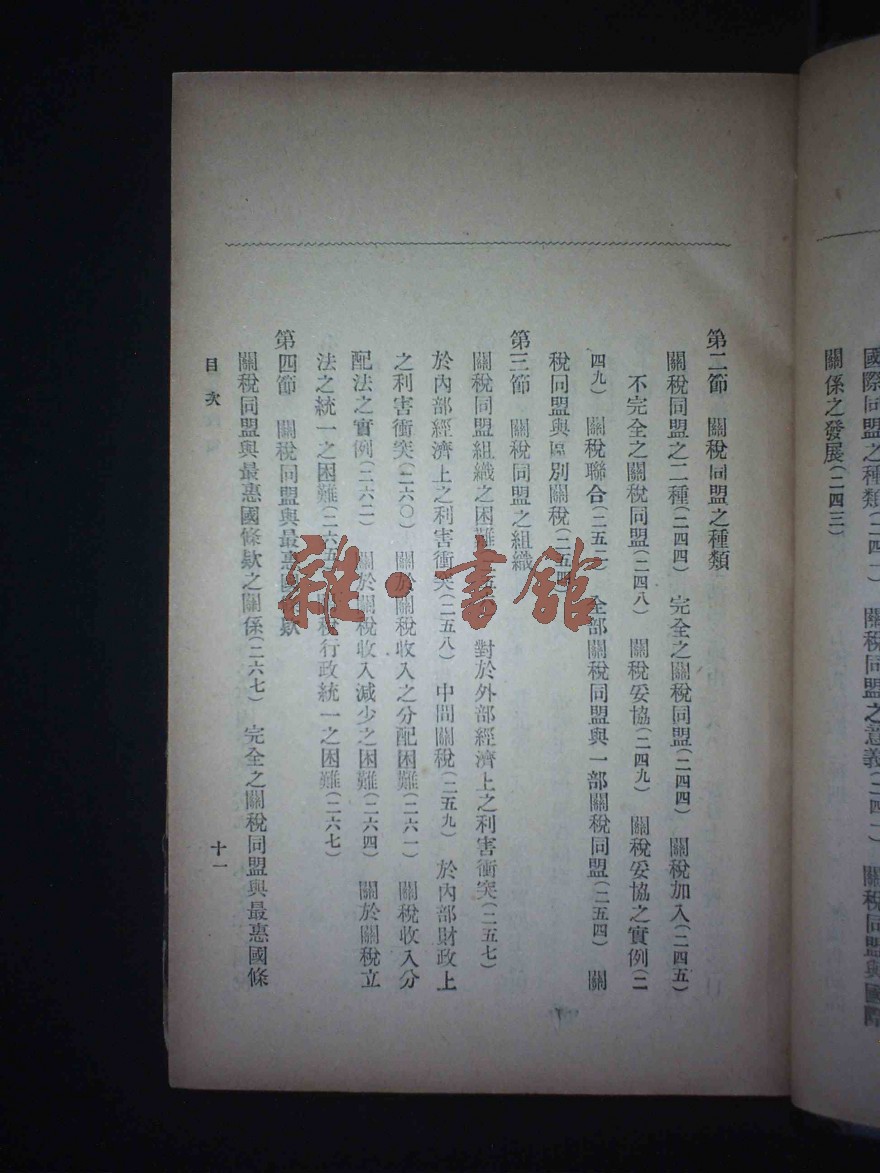 國際同盟之種類(二四一) 關稅同盟之意義(二四二) 關稅同盟與國際
關係之發展(二四三)
第二節 關稅同盟之種類
關稅同盟之二種(二四四) 完全之關稅同盟(二四四) 關稅加入(二四五)
不完全之關稅同盟(二四八) 關稅妥協(二四九) 關稅妥協之實例(二
四九) 關稅聯合(二五二) 全部關稅同盟與一部關稅同盟(二五四) 關
稅同盟與區別關稅(二五四)
第三節 關稅同盟之組織
關稅同盟組織之困難 對於外部經濟上之利害衝突(二五七)
於內部經濟上之利害衝突(二五八) 中間關稅(二五九) 於內部財政上
之利害衝突(二六〇) 關於關稅收入之分配困難(二六一) 關稅收入分
配法之實例(二六二) 關於關稅收入減少之困難(二六四) 關於關稅立
法之統一之困難(二六五 稅行政統一之困難(二六七)
第四節 關稅同盟與最惠國條款
關稅同盟與最惠國條款之關係(二六七) 完全之關稅同盟與最惠國條
目次
十一
雜·書館